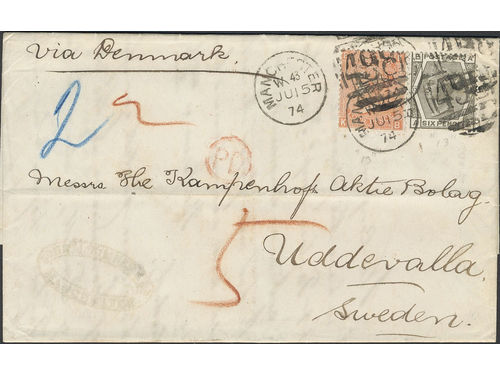 Via Denmark.
MANCHESTER
W 43
JU 15
74
POSTAGE
SIX PENCE
JU 15
74
2
2
PD
Messrs The Kampenhofs Aktie Bolag.
5
Uddevalla.
Sweden.